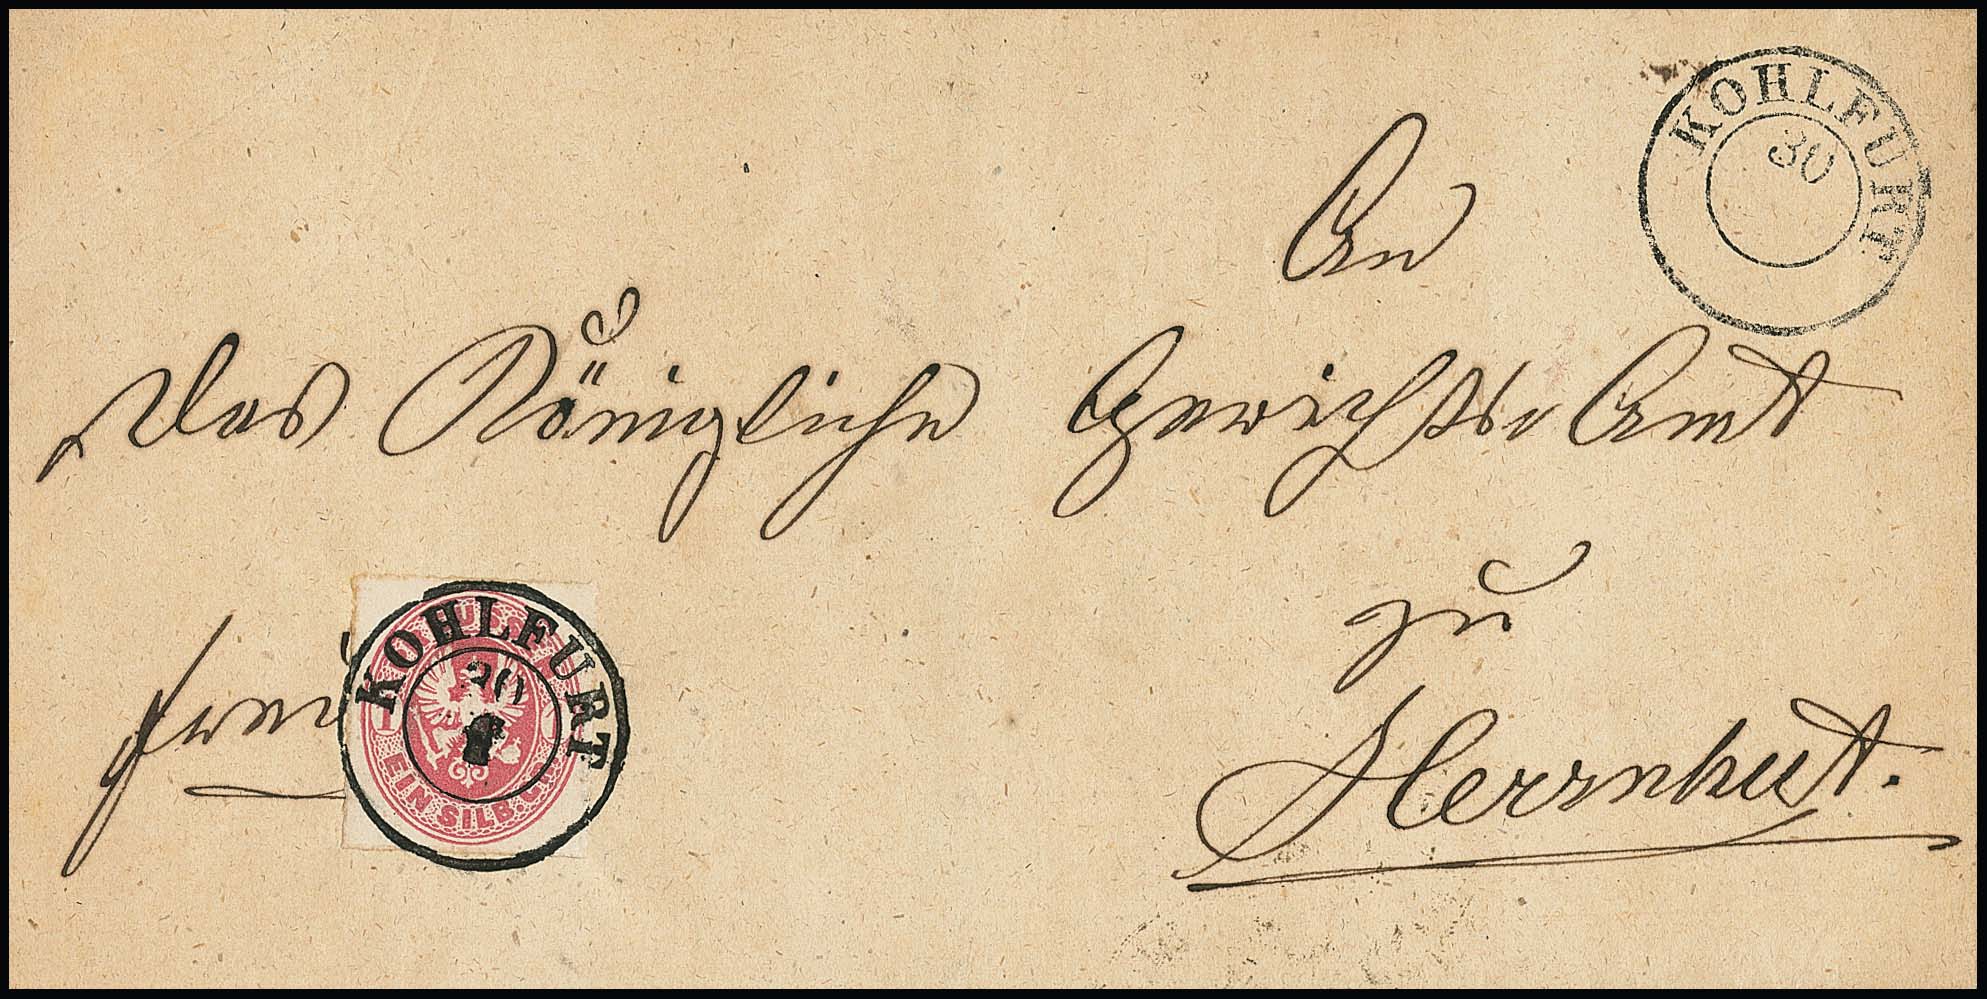 KOHLFURT
30
An
Das Königliche Gerichts-Amt
zu
Herrnhut.
frei
KOHLFURT
30
EIN SILB.G